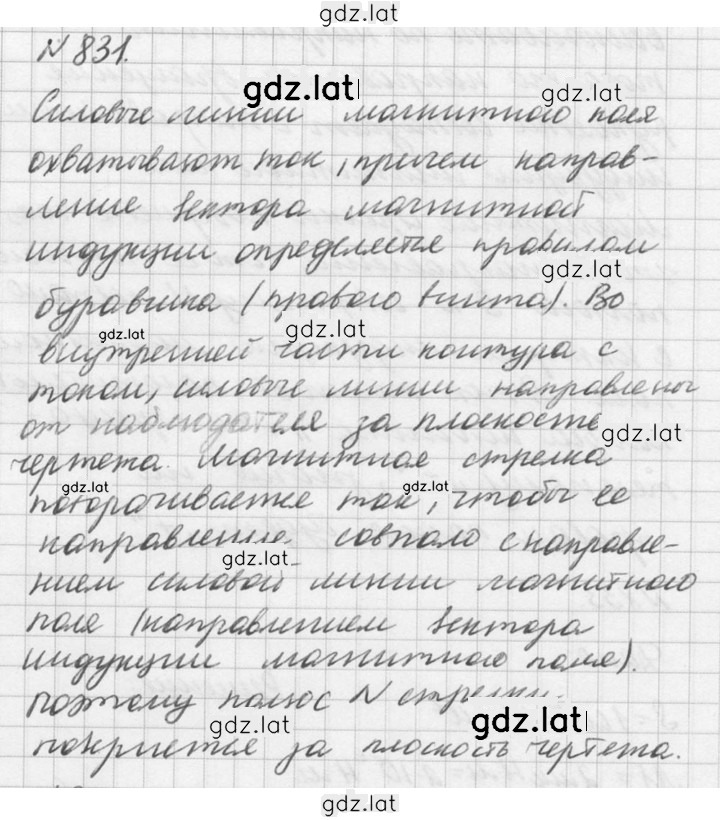 gdz.lat
N 831.
gdz.lat
gdz.lat
Силовые линии магнитного поля
охватывают ток, причем направ-
ление вектора магнитной
индукции определяется правилом
gdz.lat
буравчика (правого винта). Во
gdz.lat
gdz.lat
внутренней части контура с
током, силовые линии направлены
от наблюдателя за плоскость
gdz.lat
чертежа. Магнитная стрелка
gdz.lat
gdz.lat
поворачивается так, чтобы ее
направление совпало с направле-
gdz.lat
нием силовой линии магнитного
поля (направлением вектора
индукции магнитного поля).
Поэтому полюс N стрелки
gdz.lat
gdz.lat
повернется за плоскость чертежа.
gdz.lat